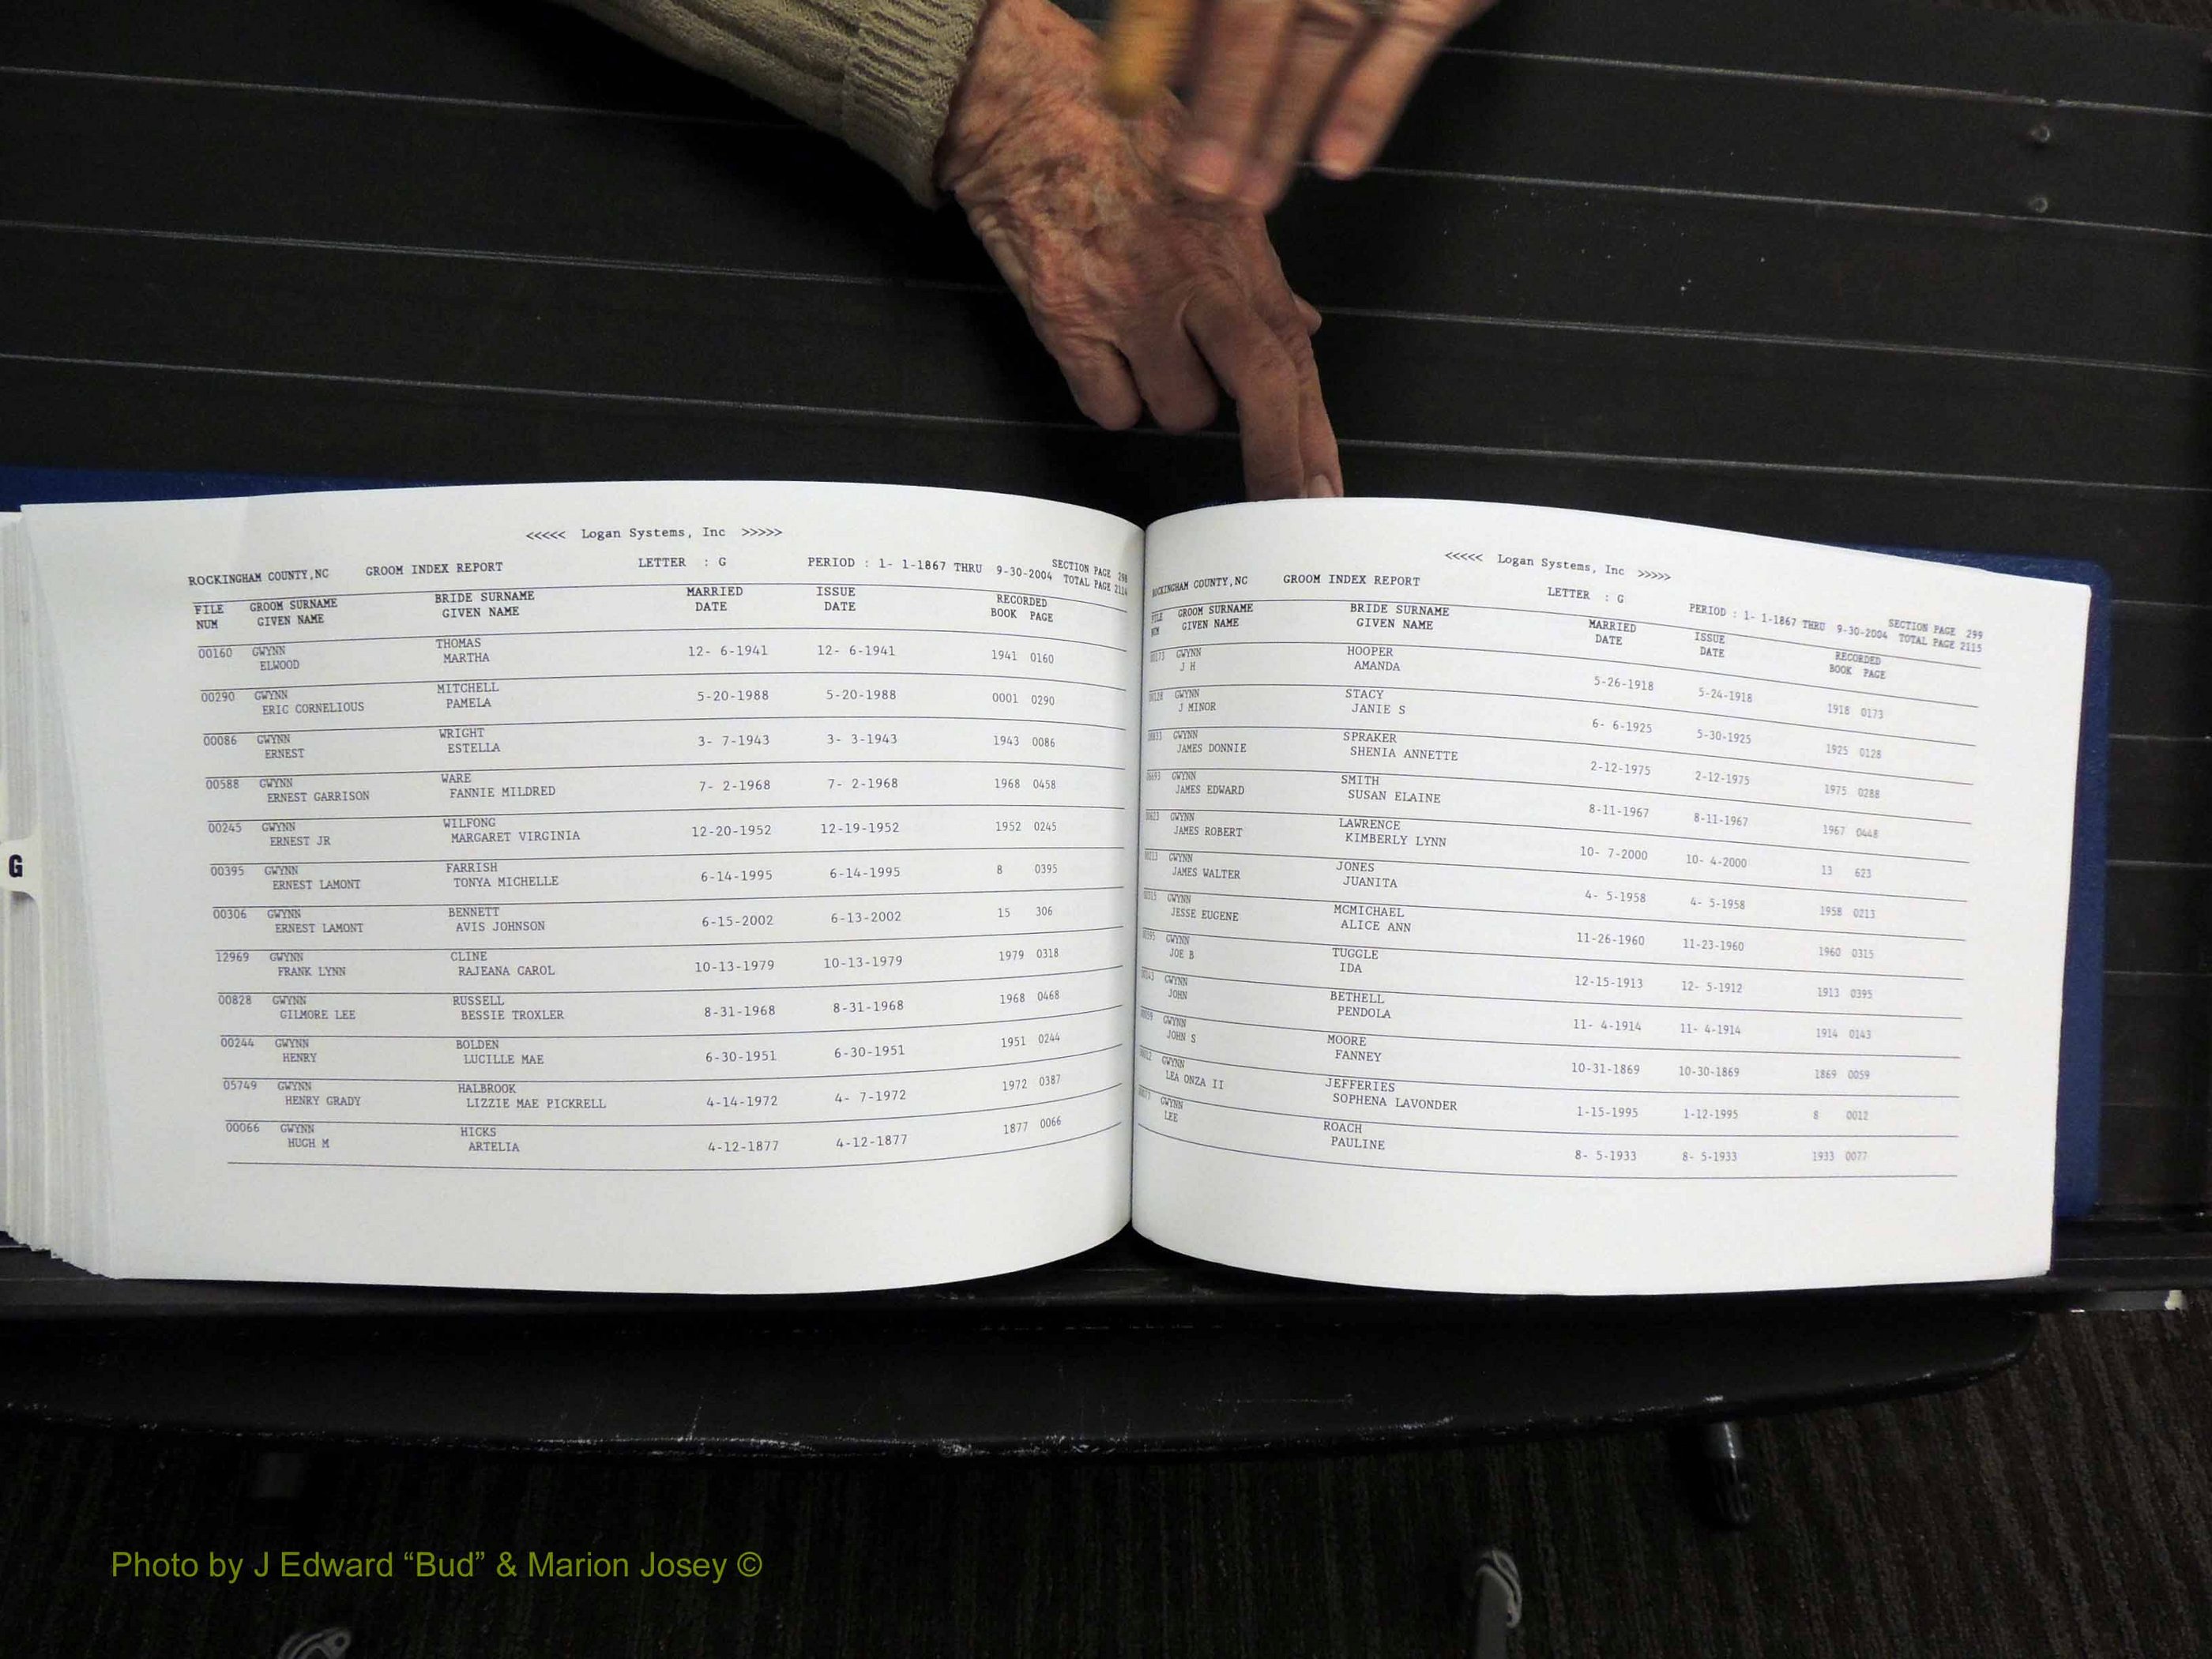 <<<<< Logan Systems, Inc >>>>>
ROCKINGHAM COUNTY,NC GROOM INDEX REPORT LETTER : G PERIOD : 1- 1-1867 THRU 9-30-2004 SECTION PAGE 298
TOTAL PAGE 2114
FILE GROOM SURNAME BRIDE SURNAME MARRIED ISSUE RECORDED
NUM GIVEN NAME GIVEN NAME DATE DATE BOOK PAGE
00160 GWYNN THOMAS 12- 6-1941 12- 6-1941 1941 0160
ELWOOD MARTHA
00290 GWYNN MITCHELL 5-20-1988 5-20-1988 0001 0290
ERIC CORNELIOUS PAMELA
00086 GWYNN WRIGHT 3- 7-1943 3- 3-1943 1943 0086
ERNEST ESTELLA
00588 GWYNN WARE 7- 2-1968 7- 2-1968 1968 0458
ERNEST GARRISON FANNIE MILDRED
00245 GWYNN WILFONG 12-20-1952 12-19-1952 1952 0245
ERNEST JR MARGARET VIRGINIA
00395 GWYNN FARRISH 6-14-1995 6-14-1995 8 0395
ERNEST LAMONT TONYA MICHELLE
00306 GWYNN BENNETT 6-15-2002 6-13-2002 15 306
ERNEST LAMONT AVIS JOHNSON
12969 GWYNN CLINE 10-13-1979 10-13-1979 1979 0318
FRANK LYNN RAJEANA CAROL
00828 GWYNN RUSSELL 8-31-1968 8-31-1968 1968 0468
GILMORE LEE BESSIE TROXLER
00244 GWYNN BOLDEN 6-30-1951 6-30-1951 1951 0244
HENRY LUCILLE MAE
05749 GWYNN HALBROOK 4-14-1972 4- 7-1972 1972 0387
HENRY GRADY LIZZIE MAE PICKRELL
00066 GWYNN HICKS 4-12-1877 4-12-1877 1877 0066
HUGH M ARTELIA
G
<<<<< Logan Systems, Inc >>>>>
ROCKINGHAM COUNTY,NC GROOM INDEX REPORT LETTER : G PERIOD : 1- 1-1867 THRU 9-30-2004 SECTION PAGE 299
TOTAL PAGE 2115
FILE GROOM SURNAME BRIDE SURNAME MARRIED ISSUE RECORDED
NUM GIVEN NAME GIVEN NAME DATE DATE BOOK PAGE
GWYNN HOOPER 5-26-1918 5-24-1918 1918 0173
J H AMANDA
GWYNN STACY 6- 6-1925 5-30-1925 1925 0128
J MINOR JANIE S
GWYNN SPRAKER 2-12-1975 2-12-1975 1975 0288
JAMES DONNIE SHENIA ANNETTE
GWYNN SMITH 8-11-1967 8-11-1967 1967 0448
JAMES EDWARD SUSAN ELAINE
GWYNN LAWRENCE 10- 7-2000 10- 4-2000 13 623
JAMES ROBERT KIMBERLY LYNN
GWYNN JONES 4- 5-1958 4- 5-1958 1958 0213
JAMES WALTER JUANITA
GWYNN MCMICHAEL 11-26-1960 11-23-1960 1960 0315
JESSE EUGENE ALICE ANN
GWYNN TUGGLE 12-15-1913 12- 5-1912 1913 0395
JOE B IDA
GWYNN BETHELL 11- 4-1914 11- 4-1914 1914 0143
JOHN PENDOLA
GWYNN MOORE 10-31-1869 10-30-1869 1869 0059
JOHN S FANNEY
GWYNN JEFFERIES 1-15-1995 1-12-1995 8 0012
LEA ONZA II SOPHENA LAVONDER
GWYNN ROACH 8- 5-1933 8- 5-1933 1933 0077
LEE PAULINE
Photo by J Edward “Bud” & Marion Josey ©